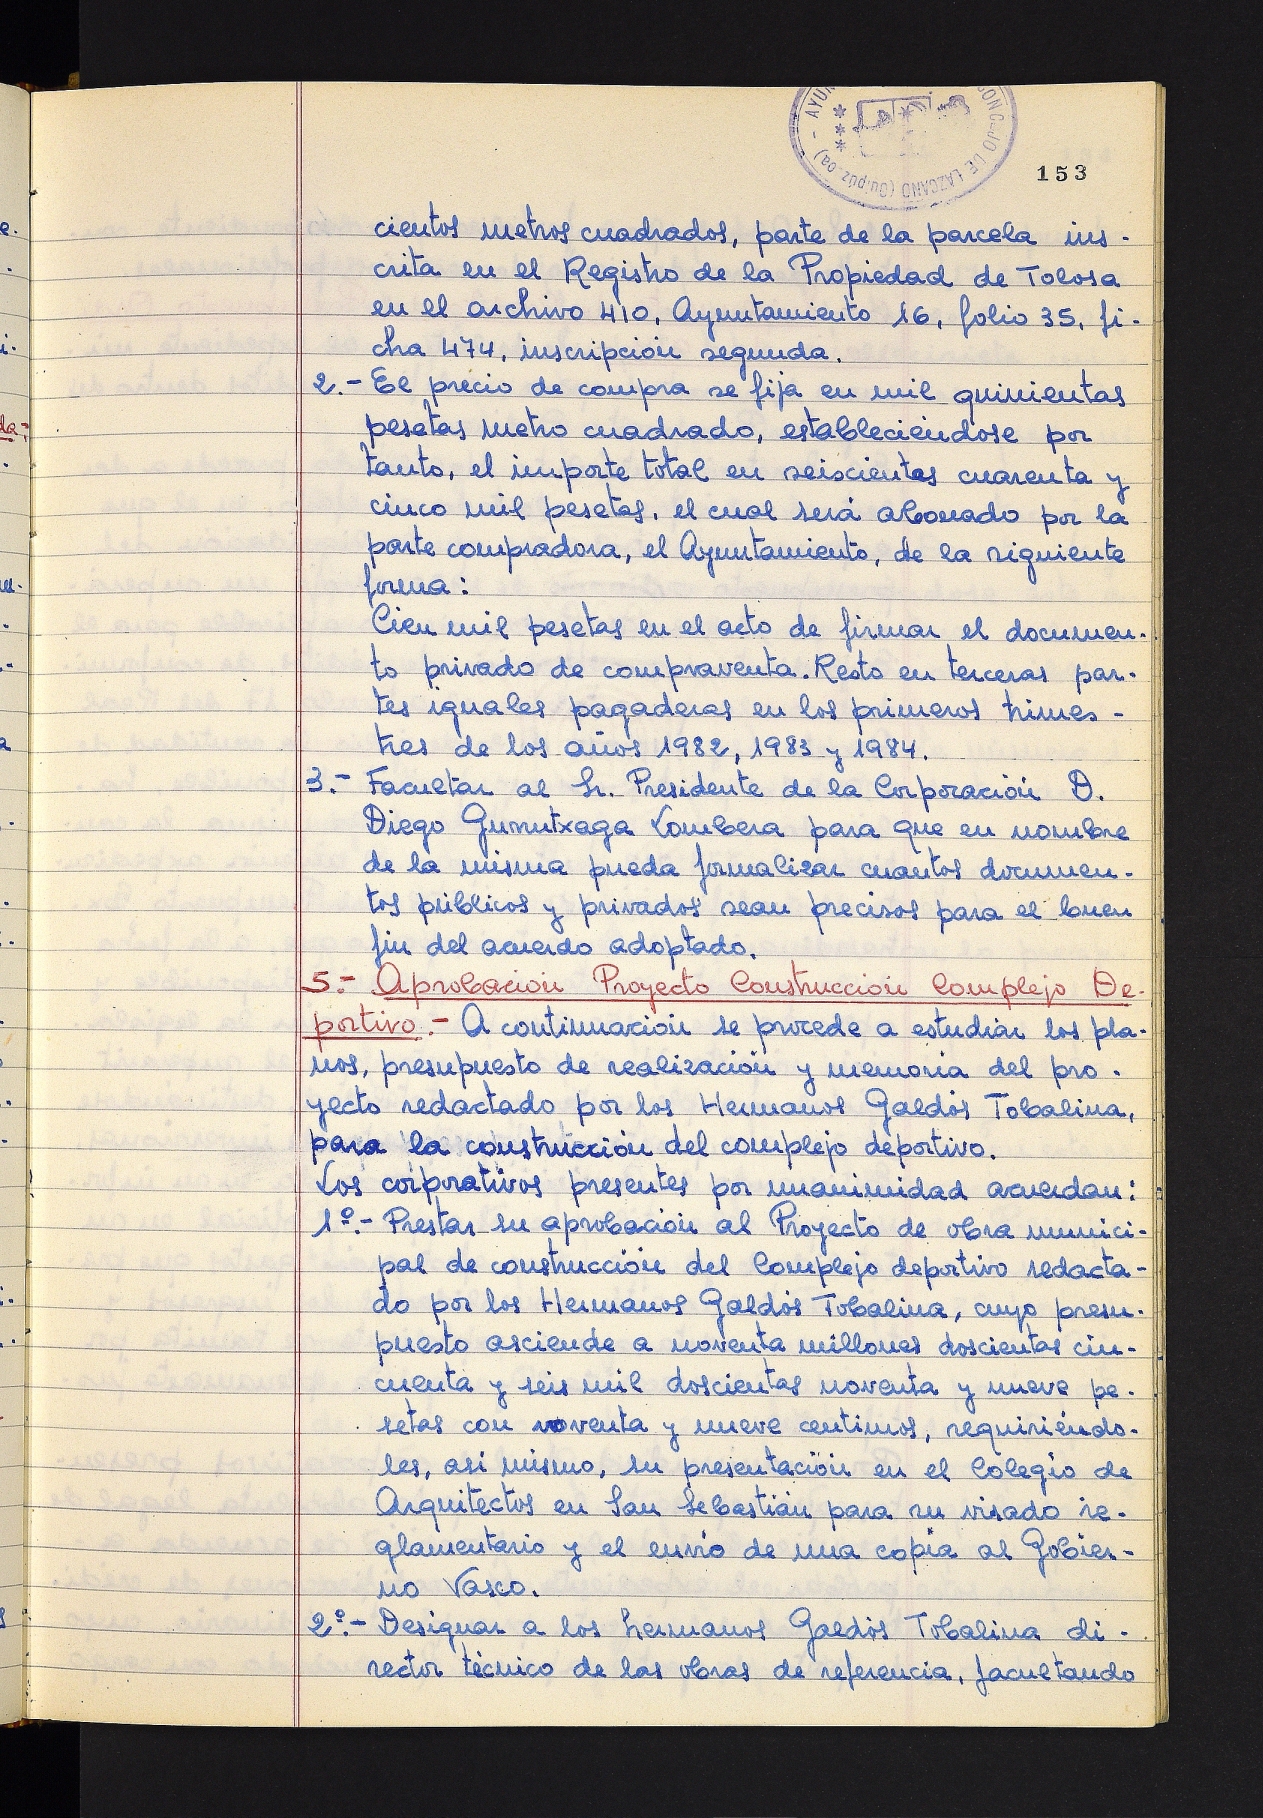 153
cientos metros cuadrados, parte de la parcela ins-
crita en el Registro de la Propiedad de Tolosa
en el archivo 410, Ayuntamiento 16, folio 35, fi-
cha 474, inscripción segunda.
2.- El precio de compra se fija en mil quinientas
pesetas metro cuadrado, estableciéndose por
tanto, el importe total en seiscientas cuarenta y
cinco mil pesetas, el cual será abonado por la
parte compradora, el Ayuntamiento, de la siguiente
forma:
Cien mil pesetas en el acto de firmar el documen-
to privado de compraventa. Resto en terceras par-
tes iguales pagaderas en los primeros trimes-
tres de los años 1982, 1983 y 1984.
3.- Facultar al Sr. Presidente de la Corporación D.
Diego Gurrutxaga Lombera para que en nombre
de la misma pueda formalizar cuantos documen-
tos públicos y privados sean precisos para el buen
fin del acuerdo adoptado.
5.- Aprobación Proyecto Construcción Complejo De-
portivo.- A continuación se procede a estudiar los pla-
nos, presupuesto de realización y memoria del pro-
yecto redactado por los Hermanos Galdós Tobalina,
para la construcción del complejo deportivo.
Los corporativos presentes por unanimidad acuerdan:
1º.- Prestar su aprobación al Proyecto de obra munici-
pal de construcción del Complejo deportivo redacta-
do por los Hermanos Galdós Tobalina, cuyo presu-
puesto asciende a noventa millones doscientas cin-
cuenta y seis mil doscientas noventa y nueve pe-
setas con noventa y nueve centimos, requiriéndo-
les, asi mismo, su presentación en el Colegio de
Arquitectos en San Sebastián para su visado re-
glamentario y el envío de una copia al Gobier-
no Vasco.
2º.- Designar a los hermanos Galdós Tobalina di-
rector técnico de las obras de referencia, facultando